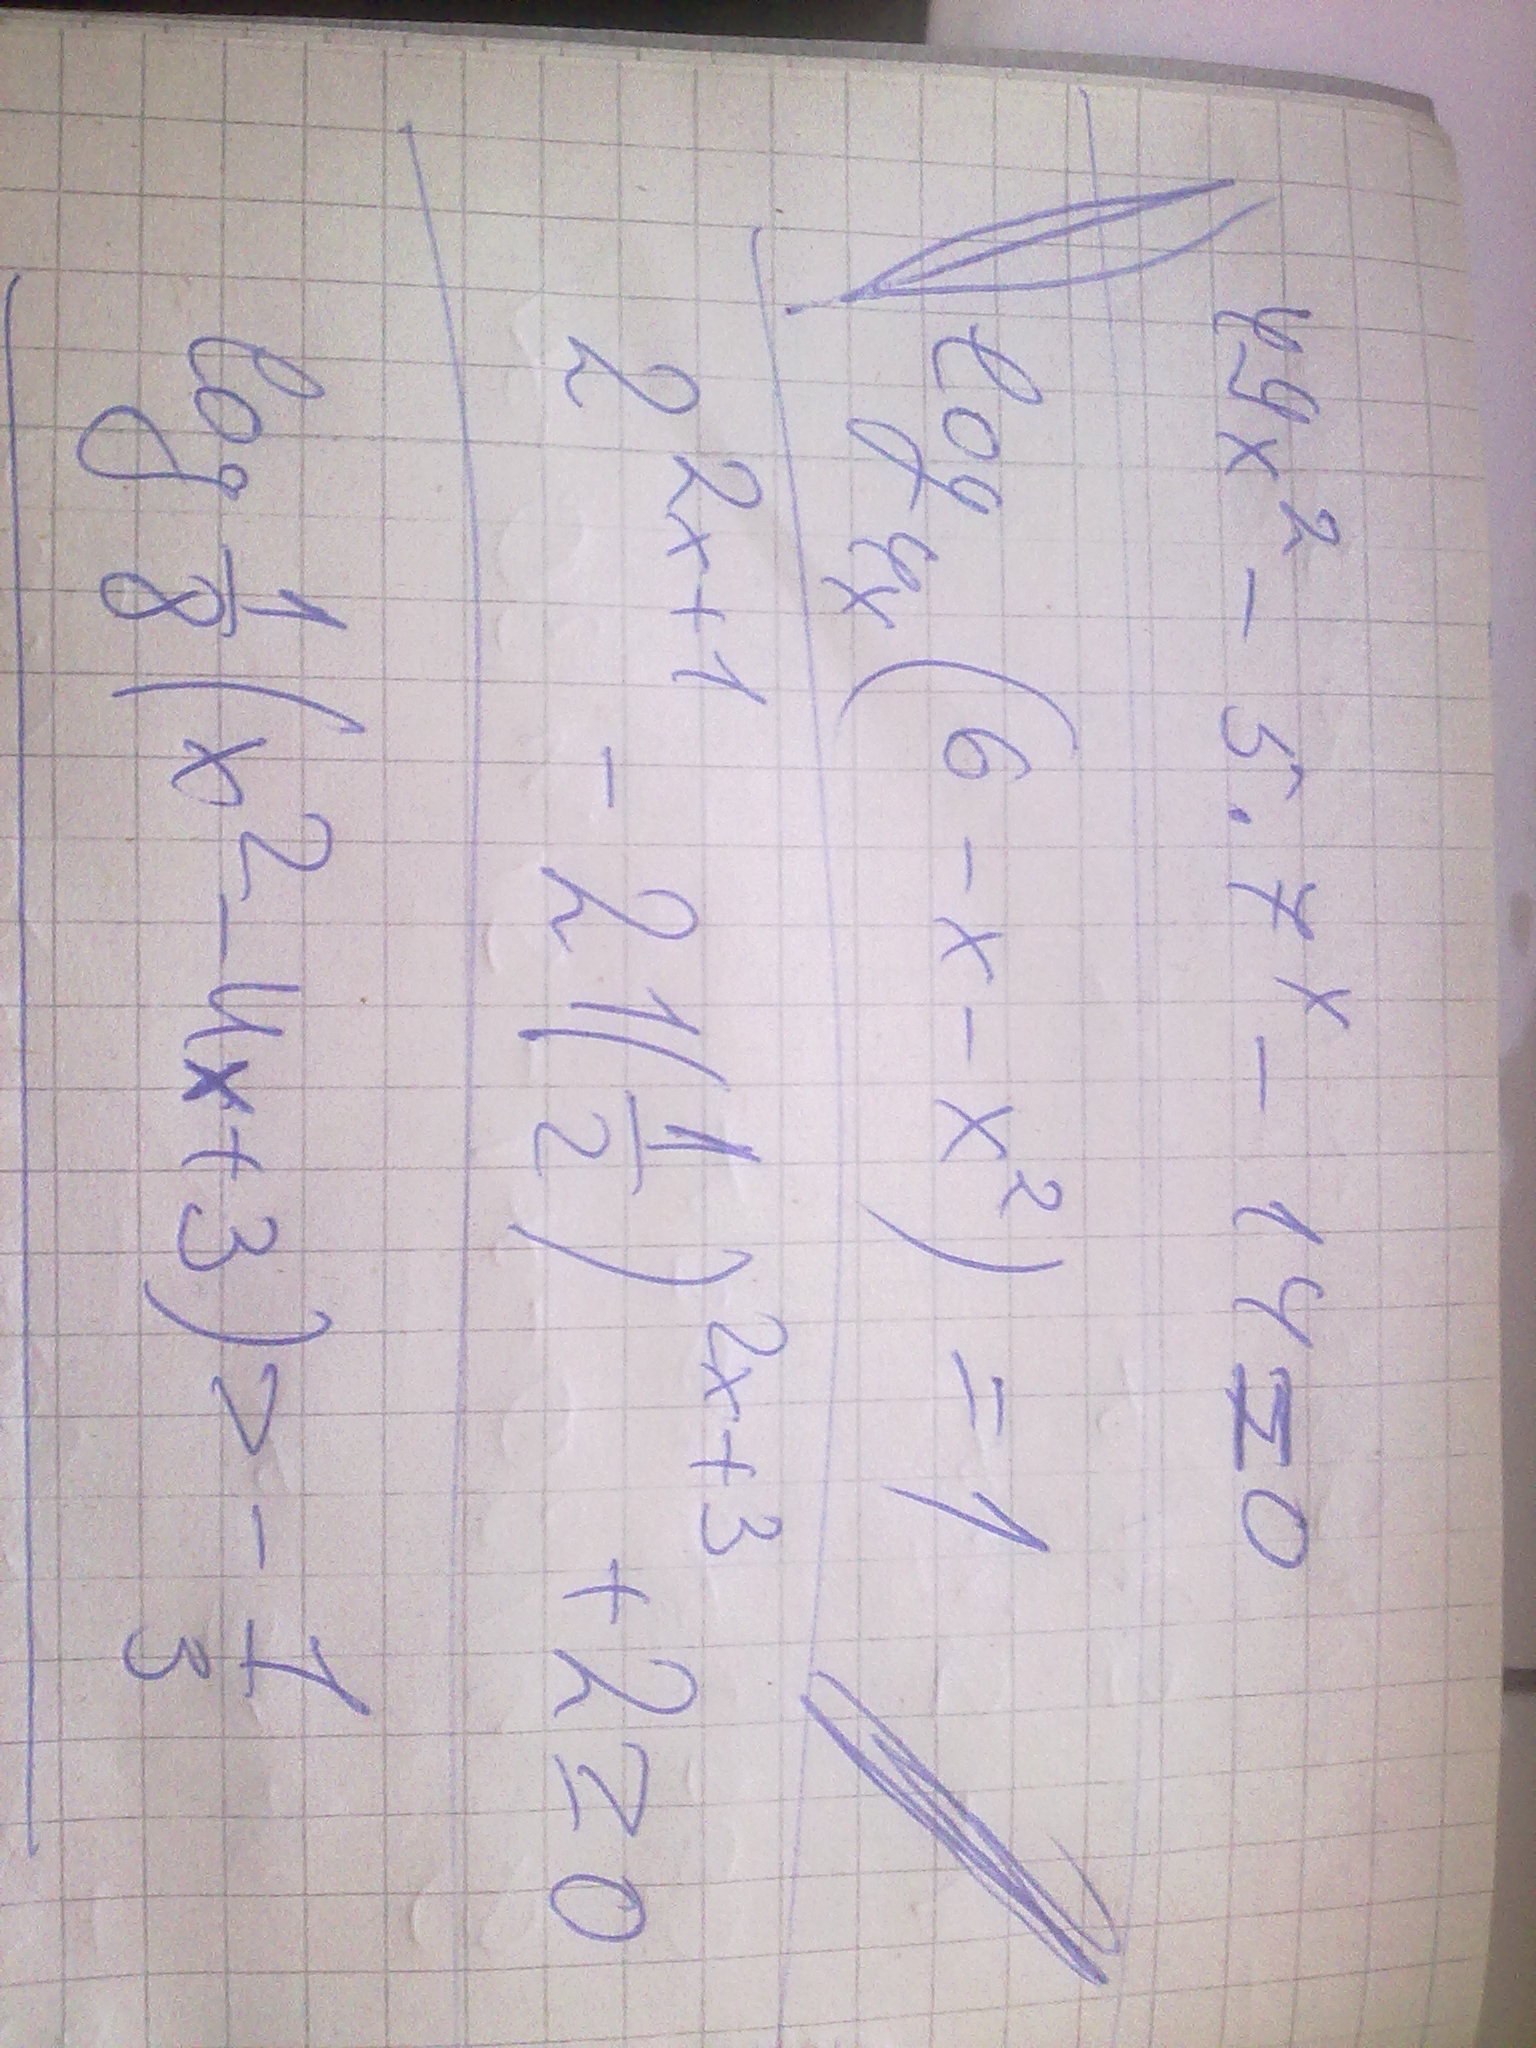 49x² - 5·7ˣ - 14 = 0
log₄ₓ(6 - x - x²) = 1
2^(2x+1) - 21(1/2)^(2x+3) + 2 ≥ 0
log 1/8 (x² - 4x + 3) > - 1/3